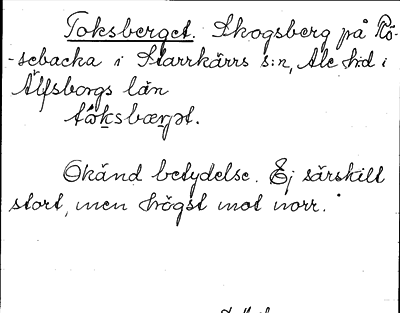 Toksberget. Skogsberg på Rö-
-sebacka i Starrkärrs s:n, Ale hd i
Älfsborgs län
tåksbærjet.
Okänd betydelse. Ej särskilt
stort, men högst mot norr.